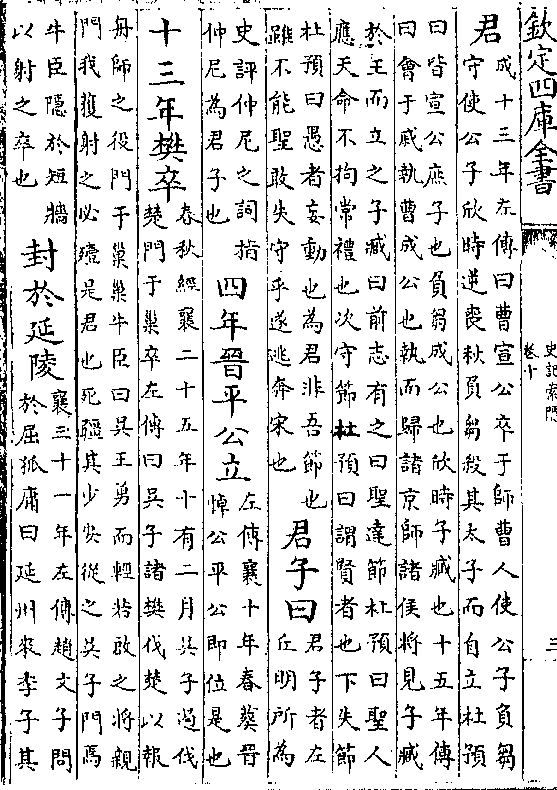 欽定四庫全書
史記索隱
卷十
三
君
成十三年左傳曰曹宣公卒于師曹人使公子負芻
守使公子欣時逆喪秋負芻殺其太子而自立杜預
曰皆宣公庶子也負芻成公也欣時子臧也十五年傳
曰會于戚執曹成公也執而歸諸京師諸侯將見子臧
於王而立之子臧曰前志有之曰聖達節杜預曰聖人
應天命不拘常禮也次守節杜預曰謂賢者也下失節
杜預曰愚者妄動也為君非吾節也
雖不能聖敢失守乎遂逃奔宋也
君子曰
君子者左
丘明所為
史評仲尼之詞指
仲尼為君子也
四年晉平公立
左傳襄十年春葬晉
悼公平公即位是也
十三年樊卒
春秋經襄二十五年十有二月吳子遏伐
楚門于巢卒左傳曰吳子諸樊伐楚以報
舟師之役門于巢巢牛臣曰吳王勇而輕若啟之將親
門我獲射之必殪是君也死疆其少安從之吳子門焉
牛臣隱於短牆
以射之卒也
封於延陵
襄三十一年左傳趙文子問
於屈狐庸曰延州來季子其